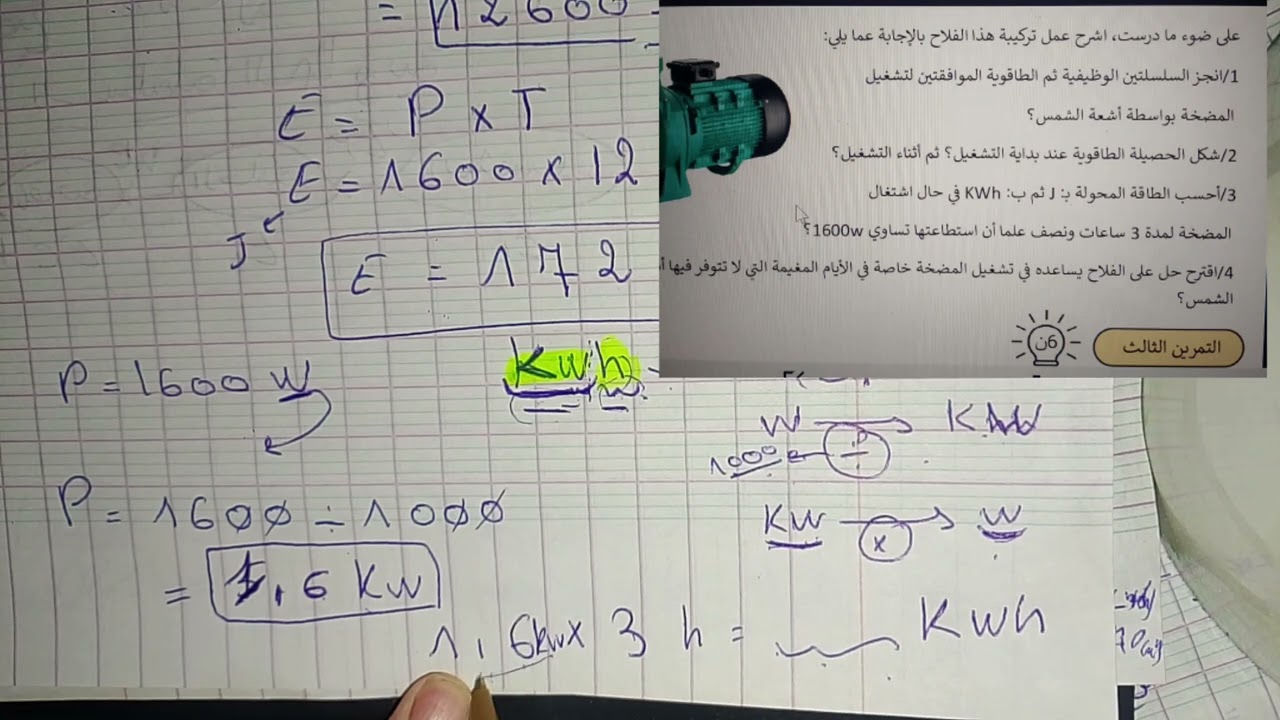 = 12600
E = P x T
E = 1600 x 12
J
E = 172
P = 1600 W
Kwh
W → KW
1000 ÷
P = 1600 ÷ 1000
KW → W
x
= 1,6 KW
1,6kwx 3 h = KWh
على ضوء ما درست، اشرح عمل تركيبة هذا الفلاح بالإجابة عما يلي:
1/انجز السلسلتين الوظيفية ثم الطاقوية الموافقتين لتشغيل
المضخة بواسطة أشعة الشمس؟
2/شكل الحصيلة الطاقوية عند بداية التشغيل؟ ثم أثناء التشغيل؟
3/أحسب الطاقة المحولة بـ: J ثم ب: KWh في حال اشتغال
المضخة لمدة 3 ساعات ونصف علما أن استطاعتها تساوي 1600w؟
4/اقترح حل على الفلاح يساعده في تشغيل المضخة خاصة في الأيام المغيمة التي لا تتوفر فيها
الشمس؟
6ن
التمرين الثالث